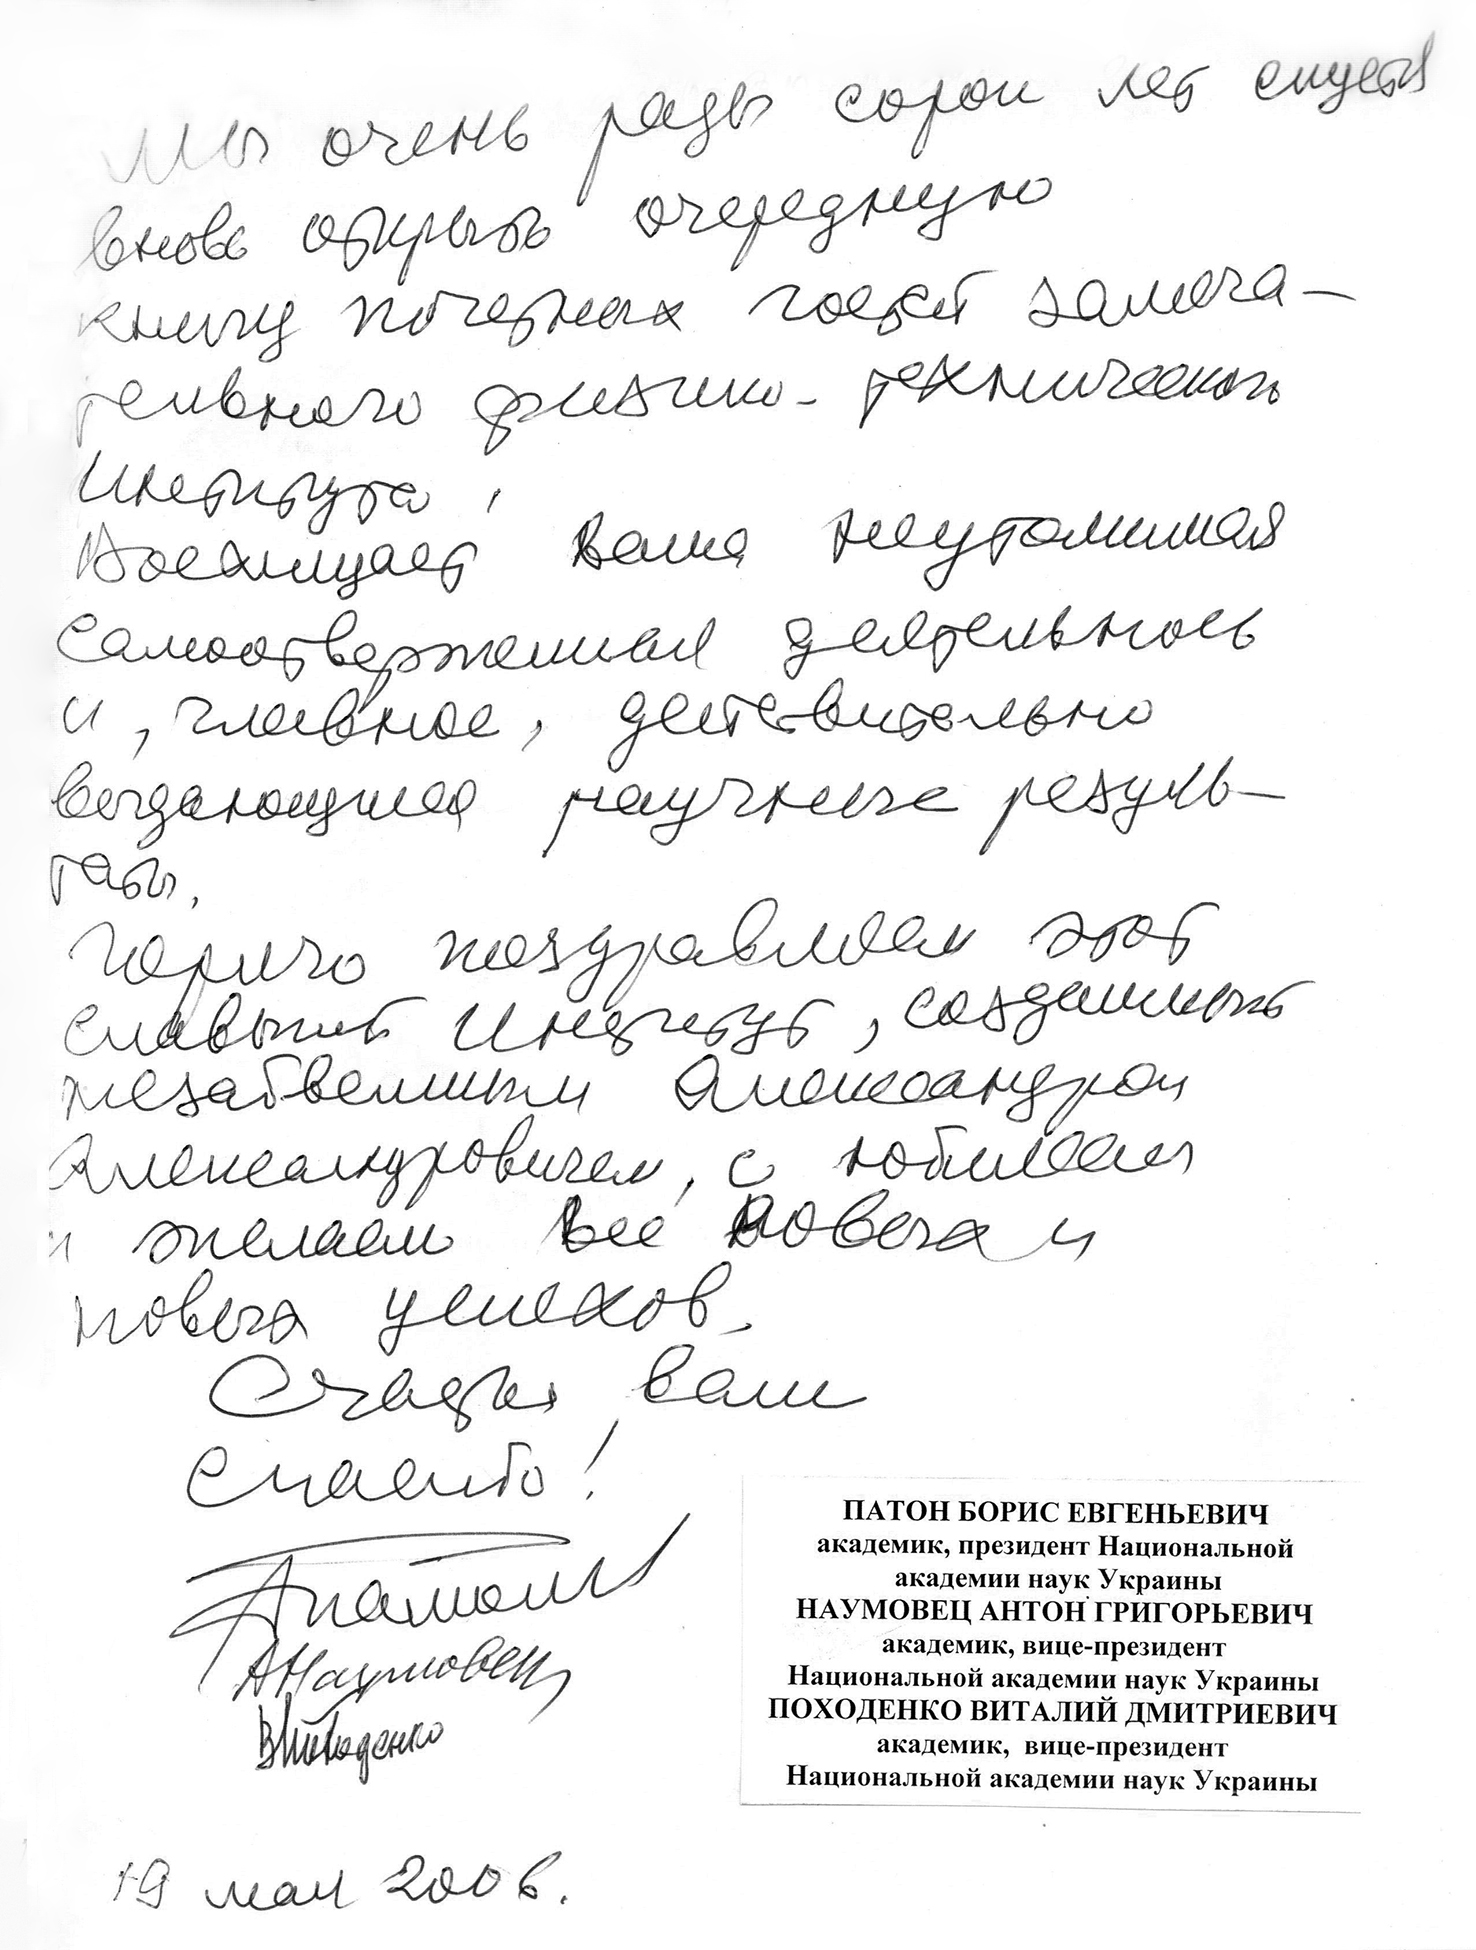 Мы очень рады сорок лет спустя
вновь открыть очередную
книгу почетных гостей замеча-
тельного физико-технического
Института.
Восхищает Ваша неутомимая
самоотверженная деятельность
и, главное, действительно
выдающиеся научные резуль-
таты.
Горячо поздравляем этот
славный Институт, созданный
незабвенным Александром
Александровичем, с юбилеем
и желаем все новых и
новых успехов.
Счастья вам
Спасибо!
Патон
АНаумовец
ВПоходенко
ПАТОН БОРИС ЕВГЕНЬЕВИЧ
академик, президент Национальной
академии наук Украины
НАУМОВЕЦ АНТОН ГРИГОРЬЕВИЧ
академик, вице-президент
Национальной академии наук Украины
ПОХОДЕНКО ВИТАЛИЙ ДМИТРИЕВИЧ
академик, вице-президент
Национальной академии наук Украины
19 мая 2006.